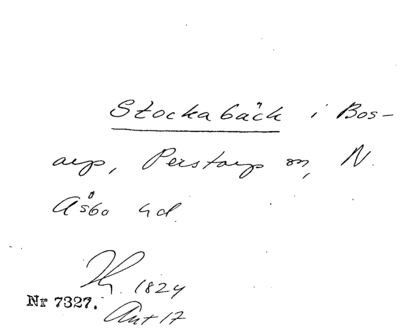 Stockabäck i Bos-
arp, Perstorp sn, N.
Åsbo hd.
1824
Nr 7327.
Ant 17